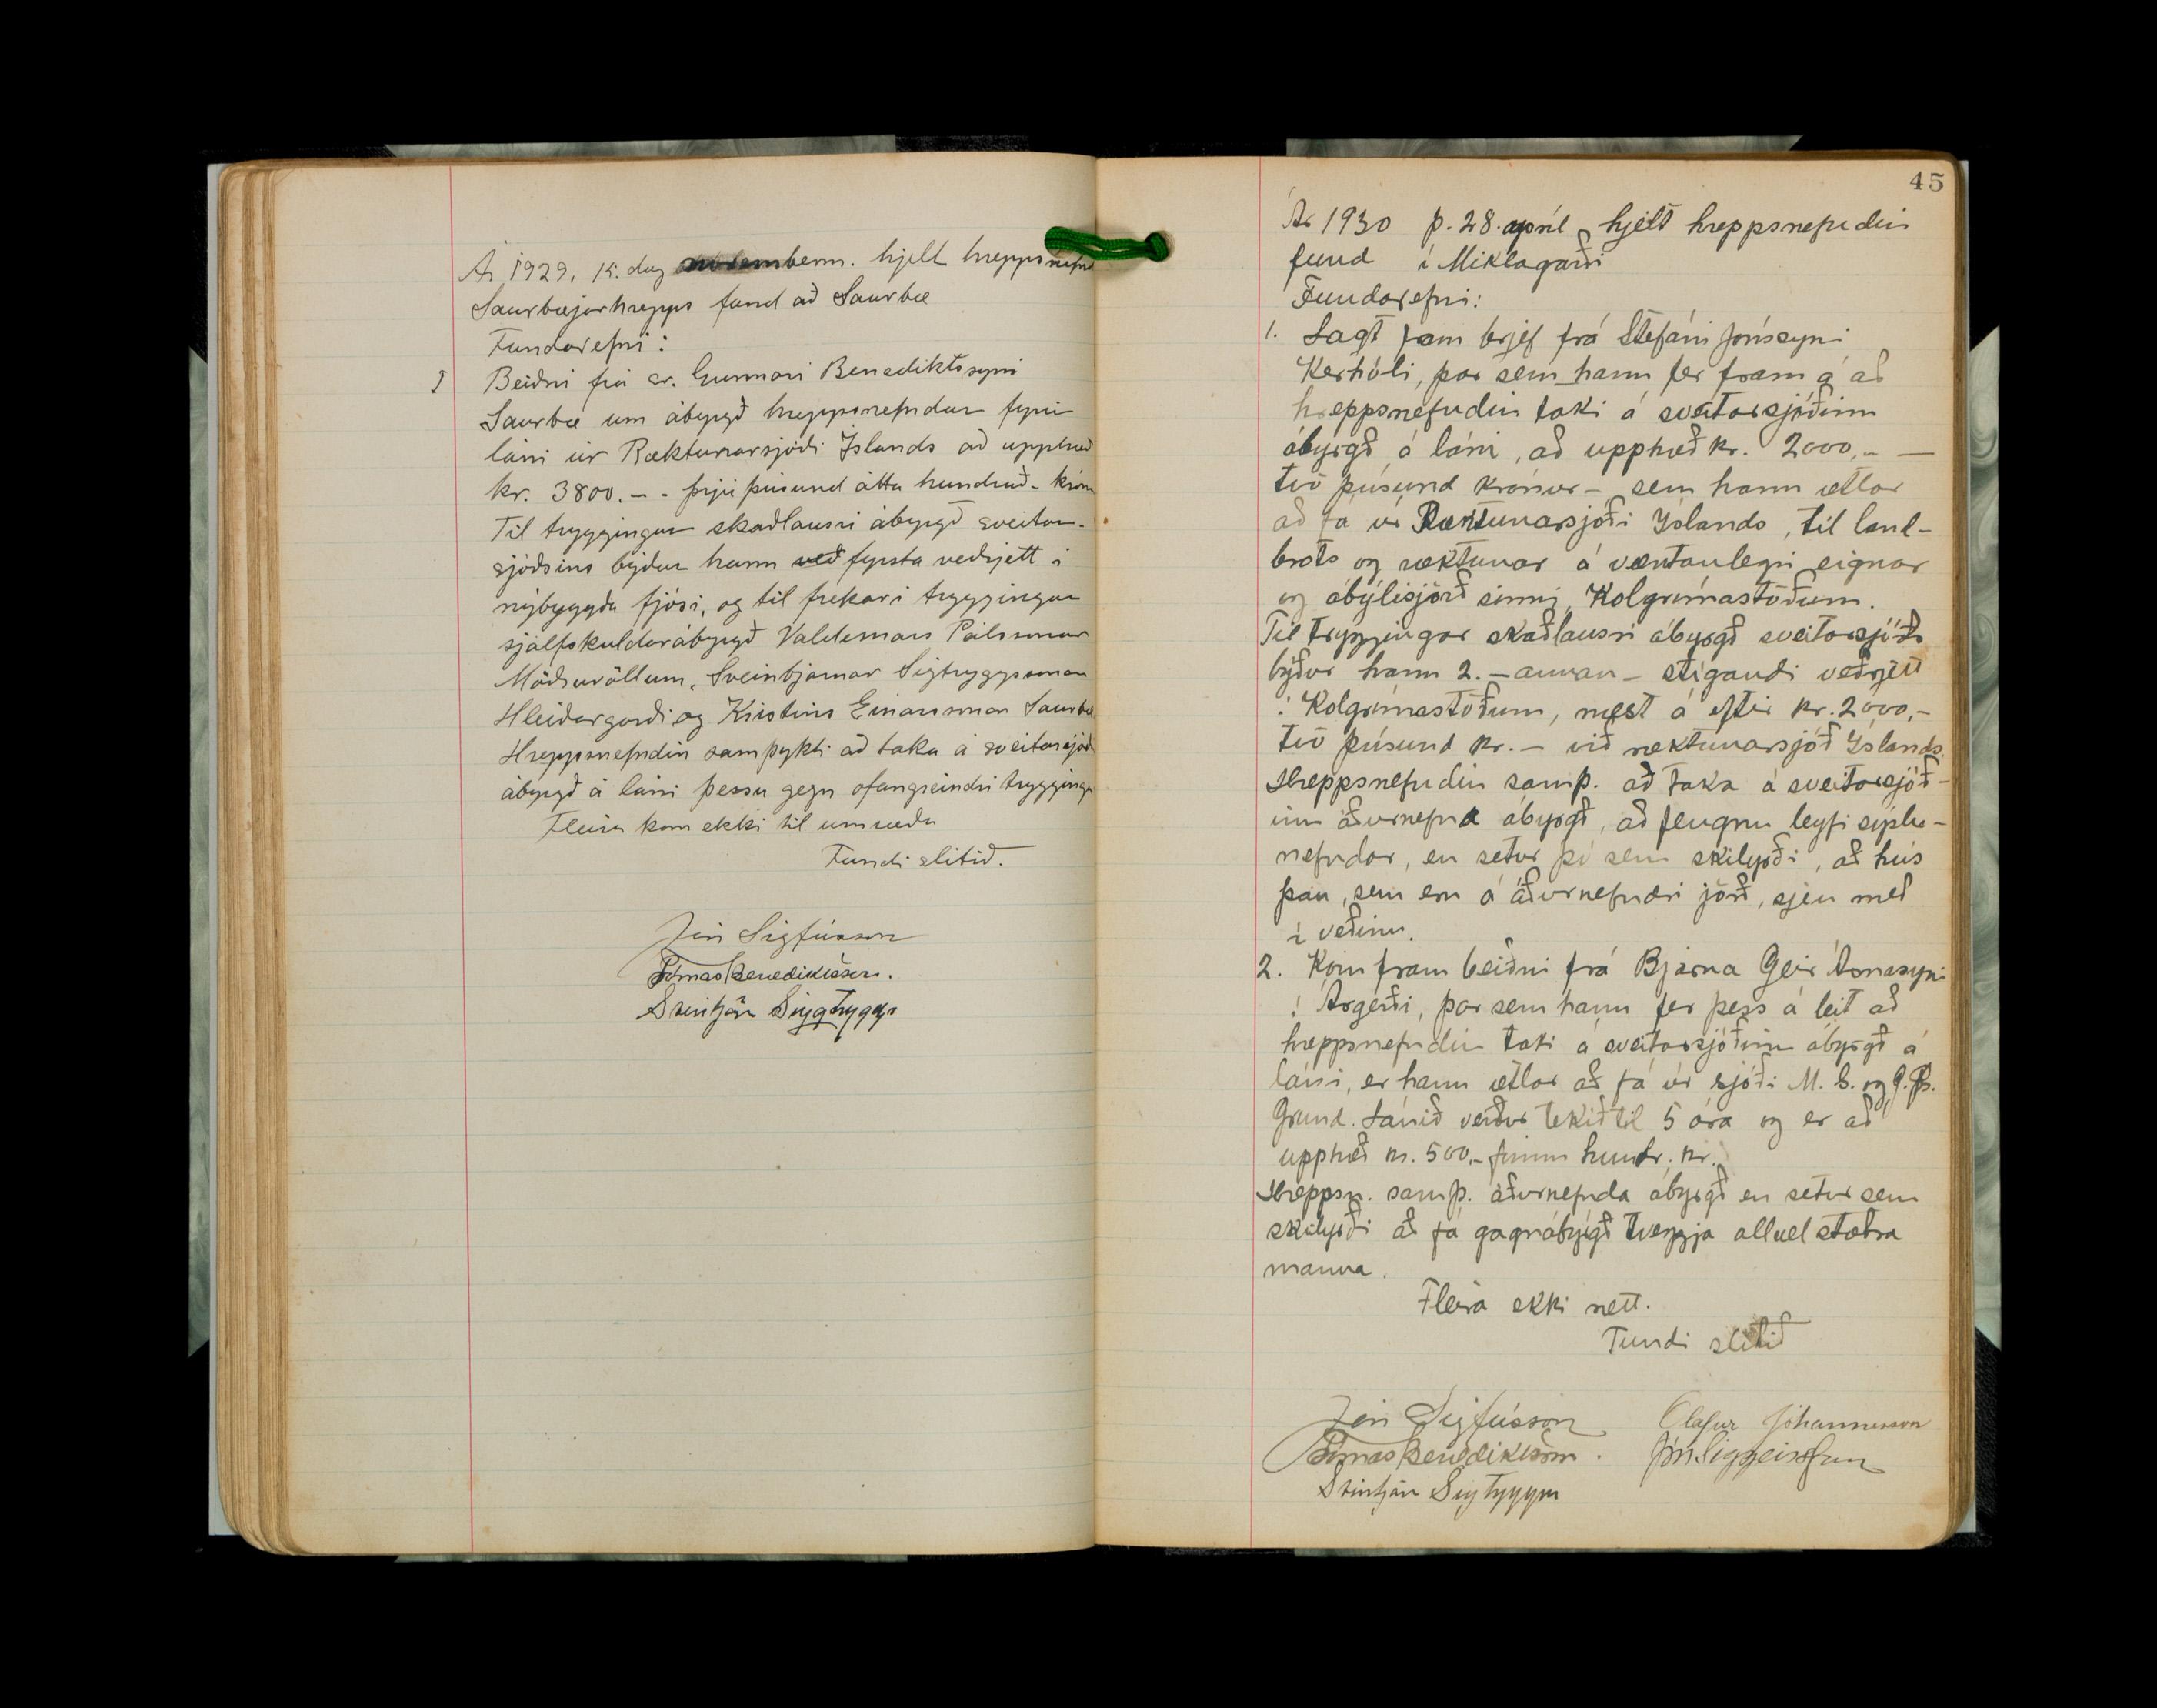 Ár 1929, 15. dag novemberm. hjelt hreppsnefnd
Saurbæjarhrepps fund að Saurbæ
Fundarefni:
I Beiðni frá sr. Gunnari Benediktssyni
Saurbæ um ábyrgð hreppsnefndar fyrir
láni úr Ræktunarsjóði Íslands að upphæð
kr. 3800.-- þrjú þúsund átta hundruð - krón
Til tryggingar skaðlausri ábyrgð sveitar-
sjóðsins býður hann veð fyrsta veðrjett í
nýbyggðu fjósi, og til frekari tryggingar
sjálfskuldarábyrgð Valdemars Pálssonar
Möðruvöllum, Sveinbjarnar Sigtryggssonar
Hleiðargarði og Kristins Einarssonar Saurbæ
Hreppsnefndin samþykti að taka á sveitarsjóð
ábyrgð á láni þessu gegn ofangreindri tryggingu
Fleira kom ekki til umræðu
Fundi slitið.
Jón Sigfússon
Tómas Benediktsson.
Sveinbjörn Sigtryggs
45
Ár 1930 þ. 28. apríl, hjelt hreppsnefndin
fund í Miklagarði
Fundarefni:
1. Lagt fram brjef frá Stefáni Jónssyni
Kerhóli, þar sem hann fer fram á að
hreppsnefndin taki á sveitarsjóðinn
ábyrgð á láni, að upphæð kr. 2000,- —
tvö þúsund krónur - sem hann ætlar
að fá úr Ræktunarsjóði Íslands, til land-
brots og ræktunar á væntanlegri eignar
og ábýlisjörð sinni, Kolgrímastöðum.
Til tryggingar skaðlausri ábyrgð sveitarsjóðs
býður hann 2. - annan - stigandi veðrjett
í Kolgrímastöðum, næst á eftir kr. 2000,-
tvö þúsund kr. - við ræktunarsjóð Íslands.
Hreppsnefndin samþ. að taka á sveitarsjóð-
inn áðurnefnda ábyrgð, að fengnu leyfi sýslu-
nefndar, en setur þó sem skilyrði, að hús
þau, sem eru á áðurnefndri jörð, sjeu með
í veðinu.
2. Kom fram beiðni frá Bjarna Geir Árnasyni
í Árgerði, þar sem hann fer þess á leit að
hreppsnefndin taki á sveitarsjóðinn ábyrgð á
láni, er hann ætlar að fá úr sjóði M. S. og G.
Grund. Lánið verður tekið til 5 ára og er að
upphæð kr. 500.- fimm hundr. kr.
Hreppsn. samþ. áðurnefnda ábyrgð en setur sem
skilyrði að fá gagnábyrgð tveggja allvel stæðra
manna.
Fleira ekki rætt.
Fundi slitið
Jón Sigfússon Ólafur Jóhannesson
Tómas Benediktsson. Jón Siggeirsson
Sveinbjörn Sigtryggss